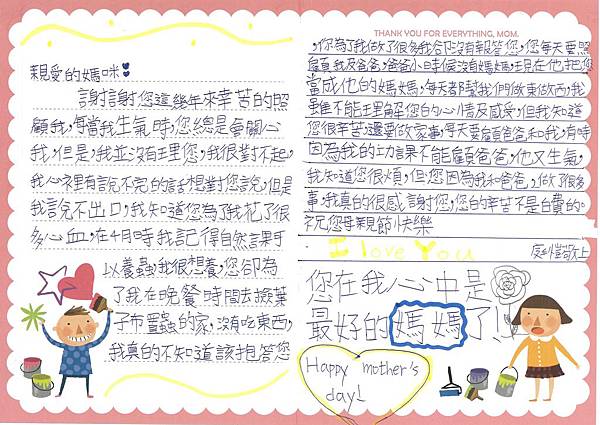 親愛的媽咪
謝謝您這幾年來辛苦的照
顧我,每當我生氣時,您總是會關心
我,但是,我並沒有理您,我很對不起,
我心裡有說不完的話想對您說,但是
我說不出口,我知道您為了我花了很
多心血,在4月時我記得自然課可
以養蠶,我很想養,您卻為
了我在晚餐時間去撿葉
子布置蠶的家,沒有吃東西,
我真的不知道該報答您
THANK YOU FOR EVERYTHING, MOM.
,你為了我做了很多我卻沒有報答您,您每天要照
顧我及爸爸,爸爸小時候沒有媽媽,現在他把您
當成他的媽媽,每天都幫我們做東做西,我
雖不能理解您的心情及感受,但我知道
您很辛苦還要做家事,每天要顧爸爸和我,有時
因為我的功課不能顧爸爸,他又生氣,
我知道您很煩,但您因為我和爸爸,做了很多
事,我真的很感謝您,您的辛苦不是白費的。
祝您母親節快樂
I love You
敬上
您在我心中是
最好的媽媽了!!
Happy mother's
day!